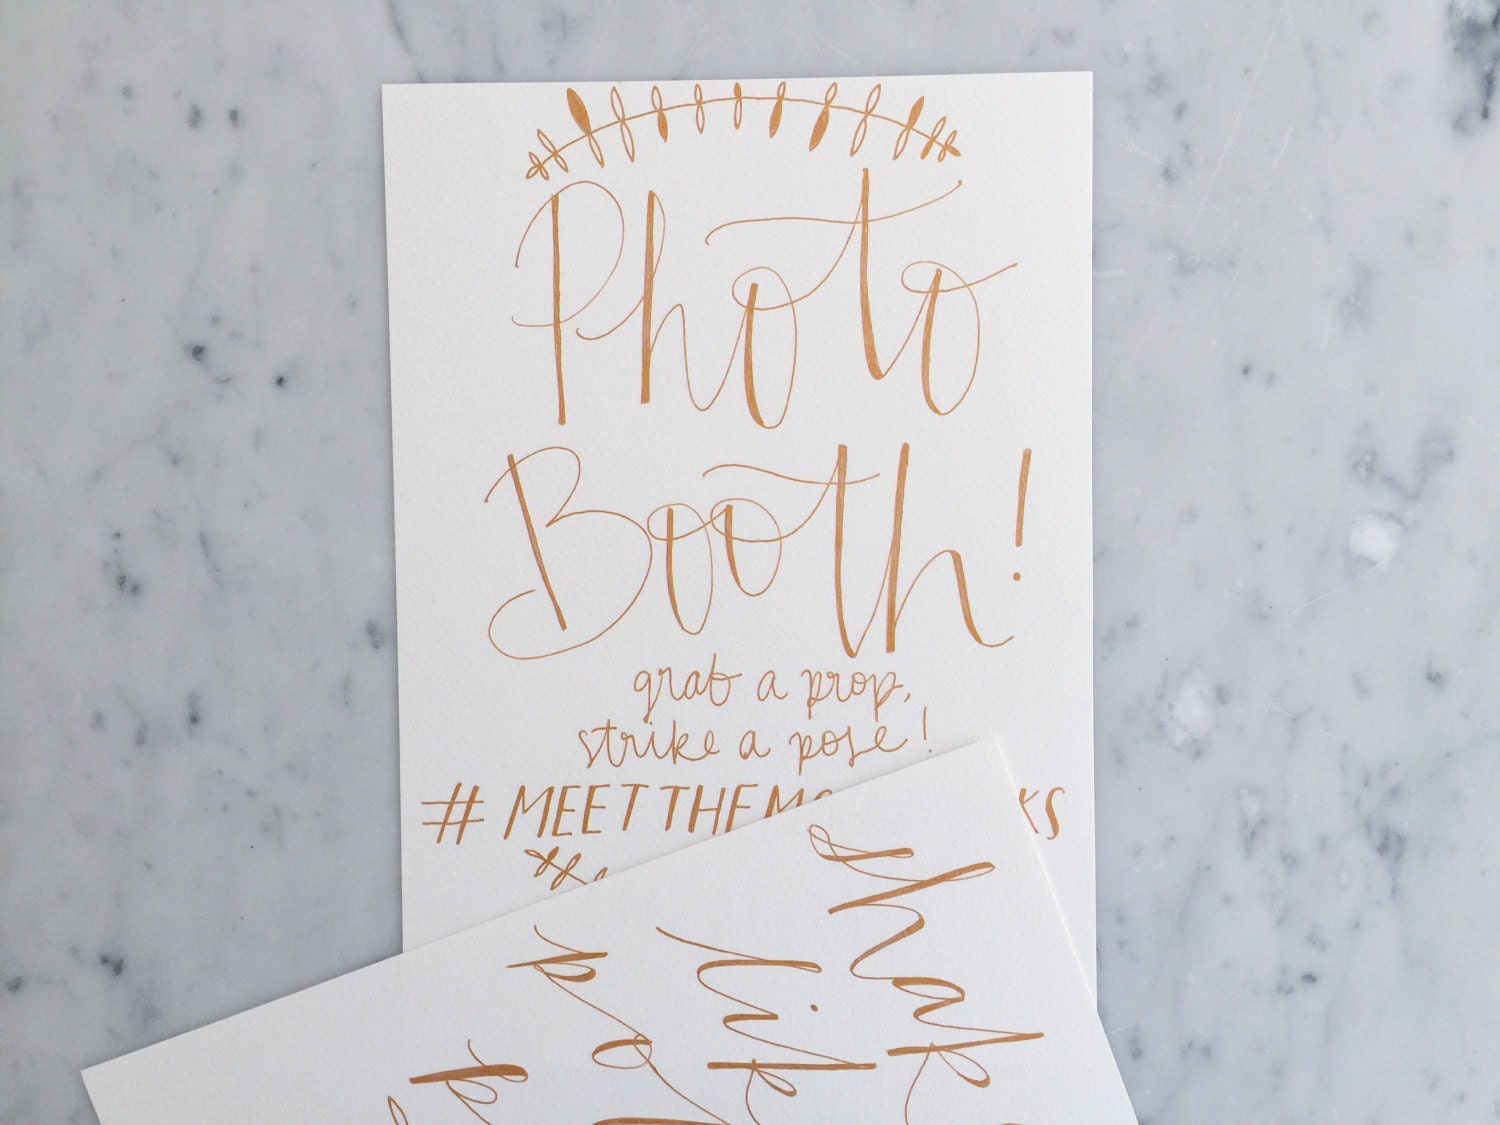 Photo
Booth!
grab a prop,
strike a pose!
#MEETTHEM
shak
lik